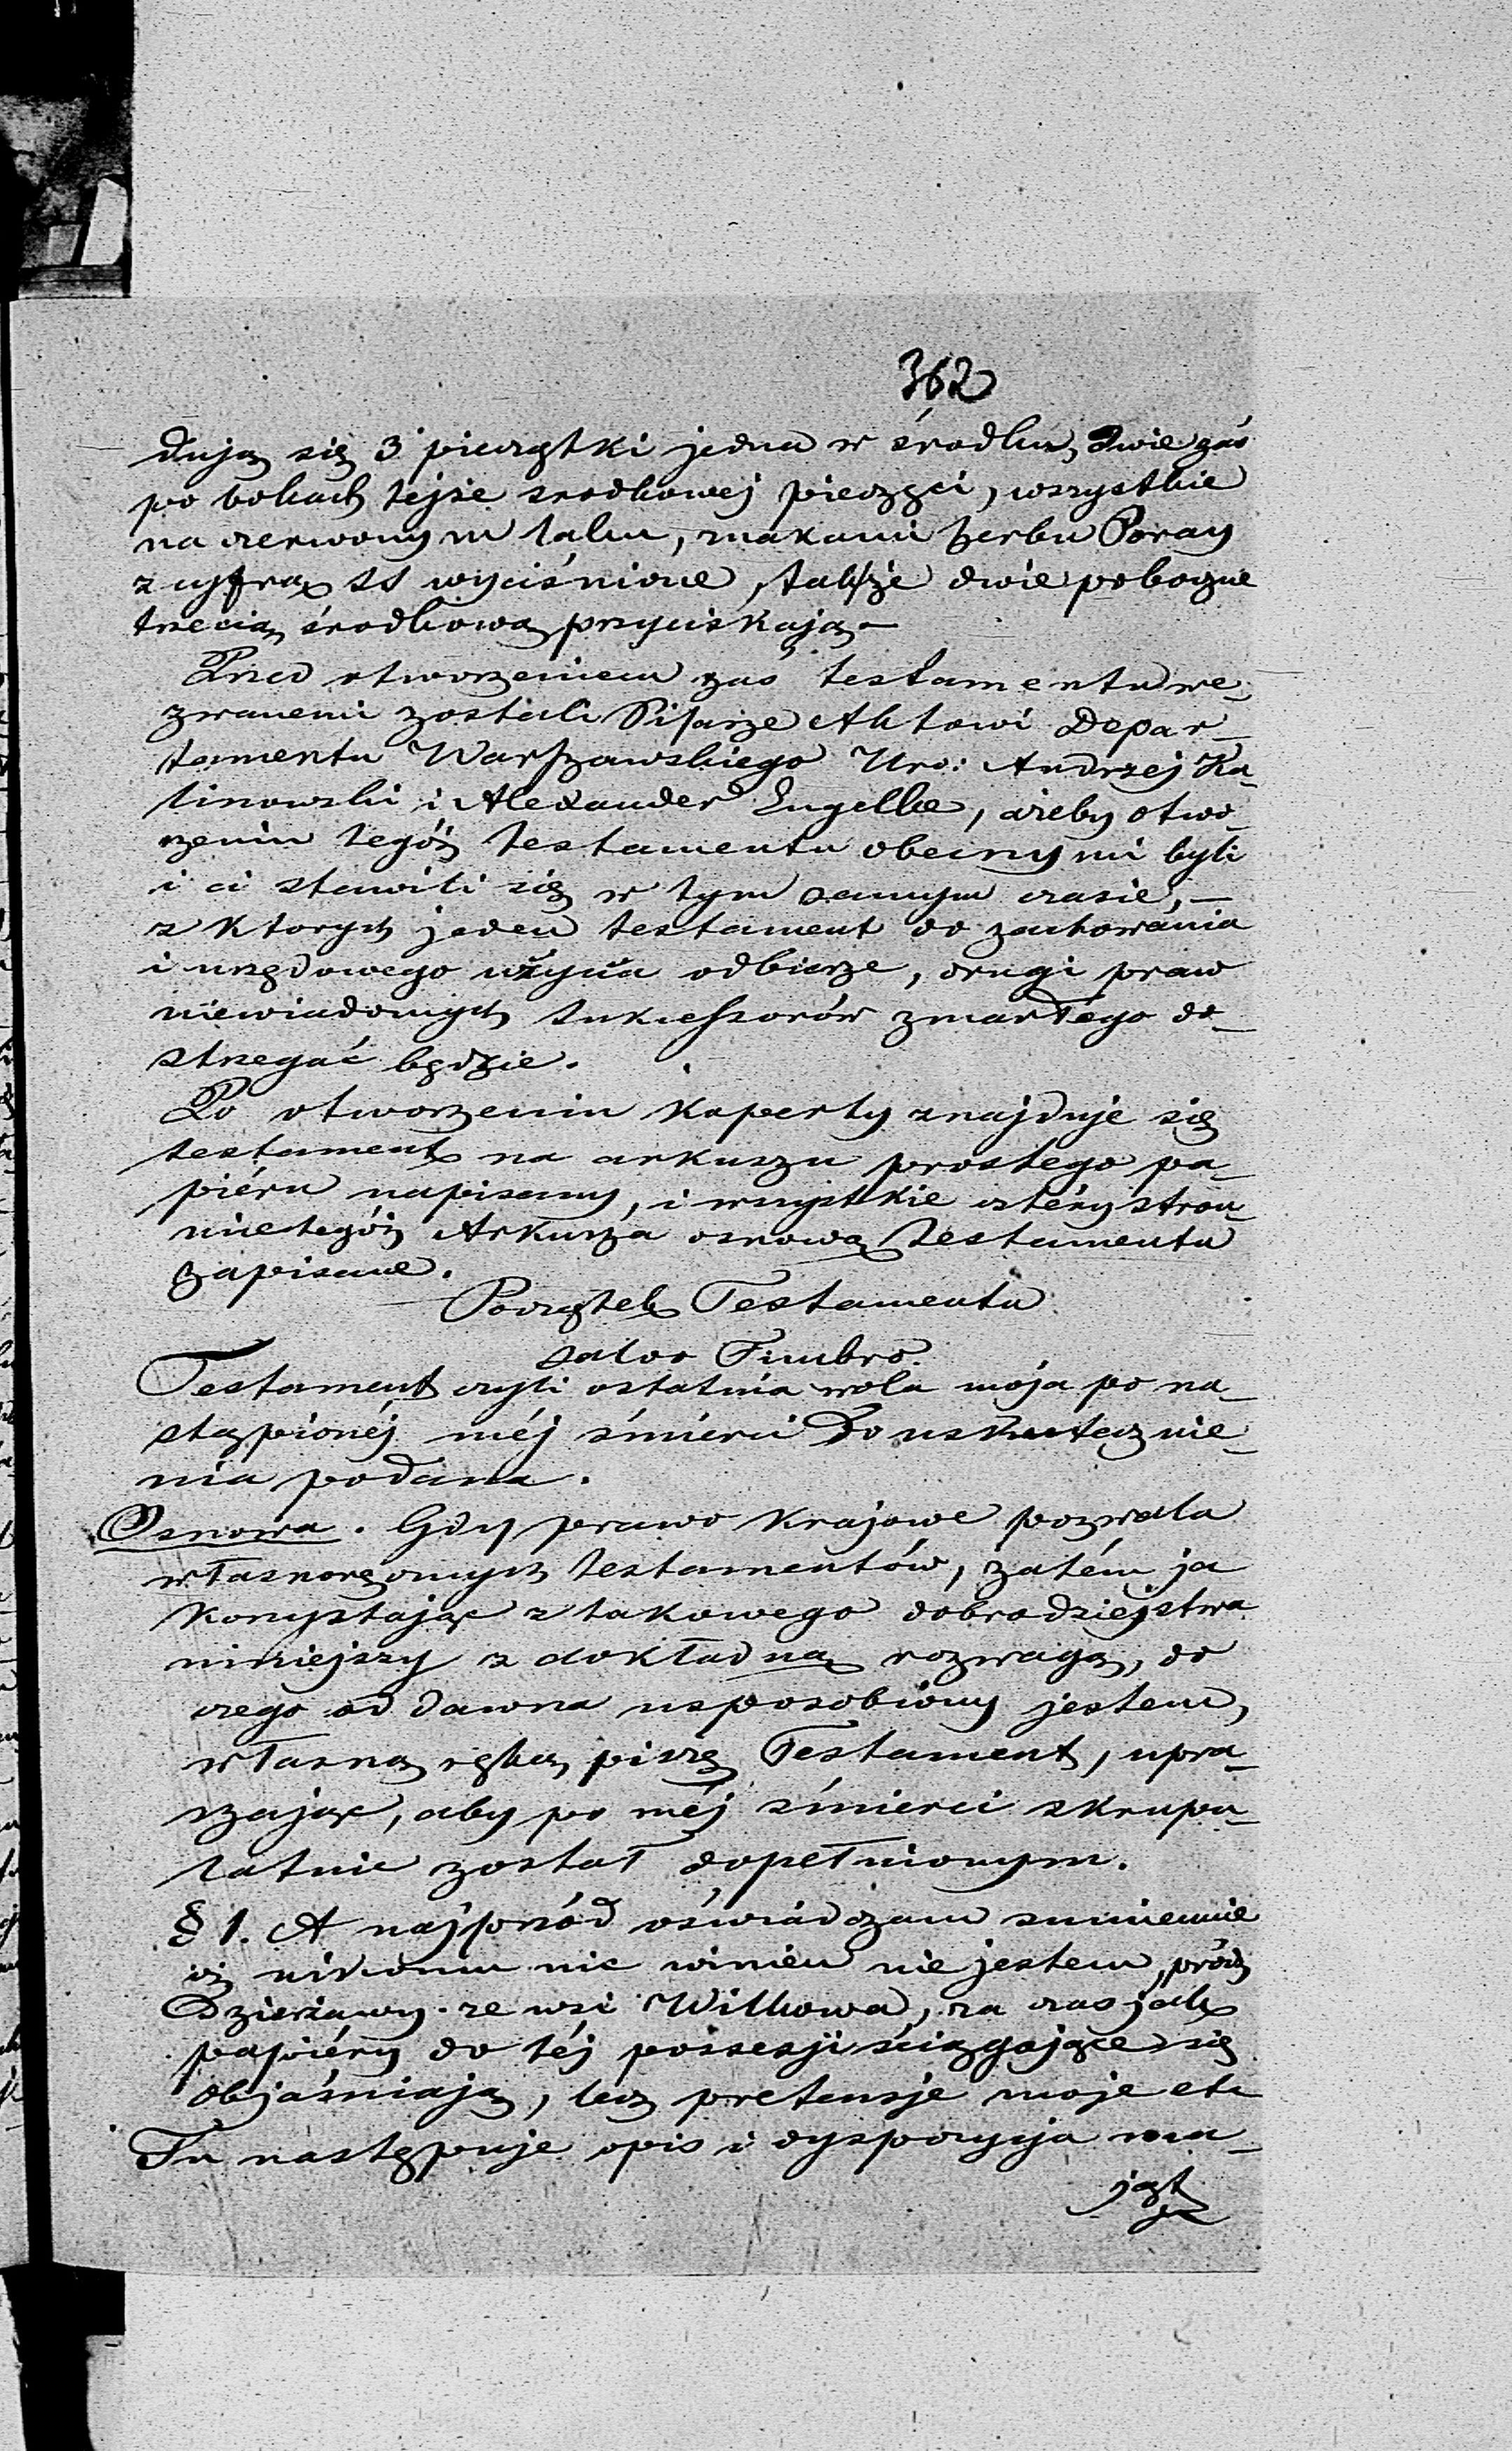 362
dują się 3 pieczątki jedna w środku, dwie zaś
po bokach tejże srodkowej pieczęci, wszystkie
na czerwonym laku, znakami herbu Poray
z cyfrą SS wyciśnione, takſże dwie poboczne
trzecią środkową przyciskają –
Przed otworzeniem zaś testamentu we-
zwanemi zostali Pisarze Aktowi Depar-
tamentu Warſzawskiego Uro: Andrzej Ka-
linowski i Alexander Engelke, ażeby otwo-
rzeniu tegóż testamentu obecnymi byli
i ci stawili się w tym samym czasie, –
z ktorych jeden testament do zachowania
i urzędowego użycia odbierze, drugi praw
niewiadomych sukceſsorów zmarłego do-
strzegać będzie.
Po otworzeniu koperty znajduje się
testament na arkuszu prostego pa-
piéru napisany, i wszystkie cztéry stron-
nice tegóż Arkusza osnową testamentu
zapisane.
Początek Testamentu
salvo Timbro.
Testament czyli ostatnia wola moja po na-
stąpionéj méj śmierci do uskutecznie-
nia podana.
Osnowa. Gdy prawo krajowe pozwala
własnoręcznych testamentów, zatém ja
korzystając z takowego dobrodziejstwa
niniejszy z dokładną rozwagą, do
czego od dawna usposobiony jestem,
własną ręką piszę Testament, upra-
szając, aby po méj śmierci skrupu-
latnie został dopełnionym.
§ 1. A najprzód oświadczam sumiennie
iż nikomu nic winien nie jestem, prócz
Dzierżawy ze wsi Wilkowa, za czas jak
papiéry do téj possesji ściągające się
objaśniają, lecz pretensje moje etc
Tu następuje opis i dyspozycja ma-
jąt